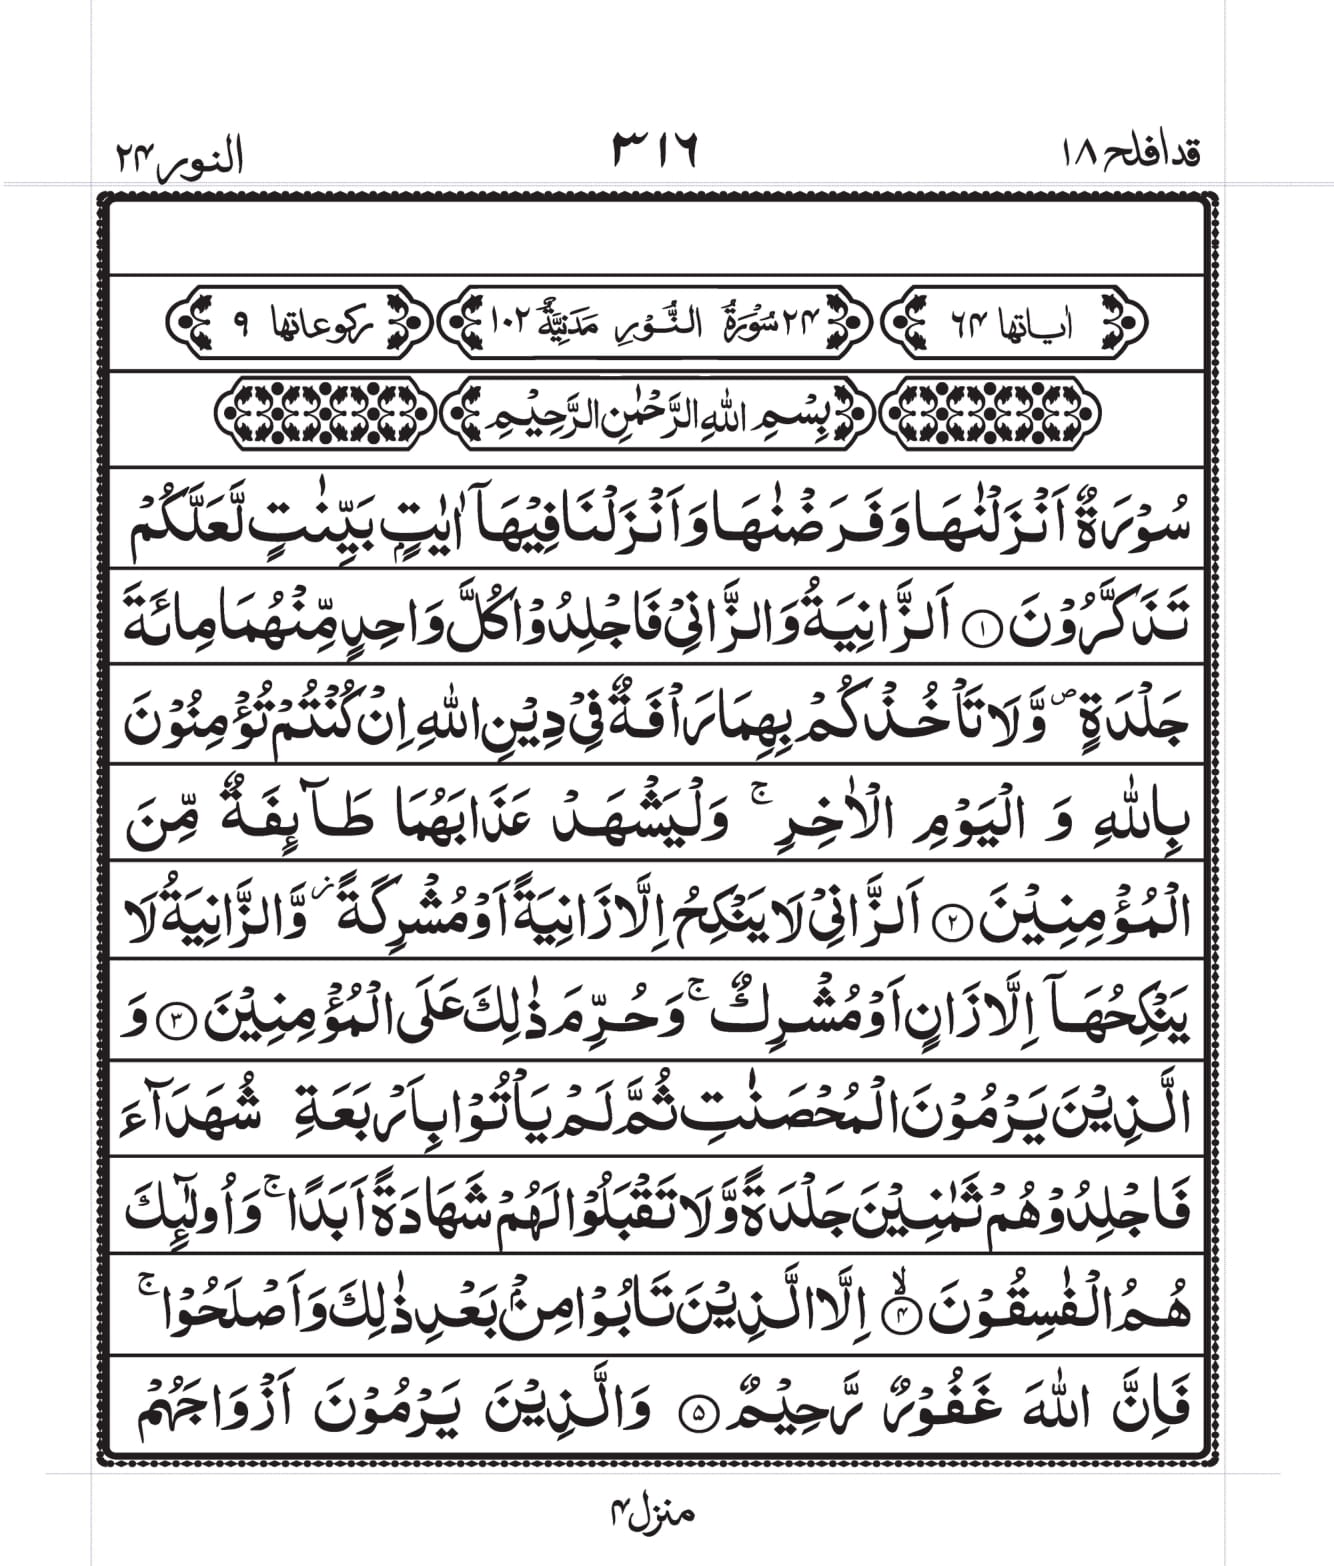 قد افلح ۱۸ ۳۱۶ النور ۲۴
اٰیاتها ۶۴ ۲۴ سُوْرَةُ النُّوْرِ مَدَنِيَّةٌ ۱۰۲ رکوعاتها ۹
بِسْمِ اللّٰهِ الرَّحْمٰنِ الرَّحِيْمِ
سُوْرَةٌ اَنْزَلْنٰهَا وَفَرَضْنٰهَا وَاَنْزَلْنَا فِيْهَاۤ اٰيٰتٍۭ بَيِّنٰتٍ لَّعَلَّكُمْ
تَذَكَّرُوْنَ ۱ اَلزَّانِيَةُ وَالزَّانِيْ فَاجْلِدُوْا كُلَّ وَاحِدٍ مِّنْهُمَا مِائَةَ
جَلْدَةٍ ۖ وَّلَا تَاْخُذْكُمْ بِهِمَا رَاْفَةٌ فِيْ دِيْنِ اللّٰهِ اِنْ كُنْتُمْ تُؤْمِنُوْنَ
بِاللّٰهِ وَ الْيَوْمِ الْاٰخِرِ ۚ وَلْيَشْهَدْ عَذَابَهُمَا طَآىِٕفَةٌ مِّنَ
الْمُؤْمِنِيْنَ ۲ اَلزَّانِيْ لَا يَنْكِحُ اِلَّا زَانِيَةً اَوْ مُشْرِكَةً ؗ وَّالزَّانِيَةُ لَا
يَنْكِحُهَاۤ اِلَّا زَانٍ اَوْ مُشْرِكٌ ۚ وَحُرِّمَ ذٰلِكَ عَلَى الْمُؤْمِنِيْنَ ۳ وَ
الَّذِيْنَ يَرْمُوْنَ الْمُحْصَنٰتِ ثُمَّ لَمْ يَاْتُوْا بِاَرْبَعَةِ شُهَدَآءَ
فَاجْلِدُوْهُمْ ثَمٰنِيْنَ جَلْدَةً وَّلَا تَقْبَلُوْا لَهُمْ شَهَادَةً اَبَدًا ۚ وَاُولٰٓىِٕكَ
هُمُ الْفٰسِقُوْنَ ۙ۴ اِلَّا الَّذِيْنَ تَابُوْا مِنْۢ بَعْدِ ذٰلِكَ وَاَصْلَحُوْا ۚ
فَاِنَّ اللّٰهَ غَفُوْرٌ رَّحِيْمٌ ۵ وَالَّذِيْنَ يَرْمُوْنَ اَزْوَاجَهُمْ
منزل ۴